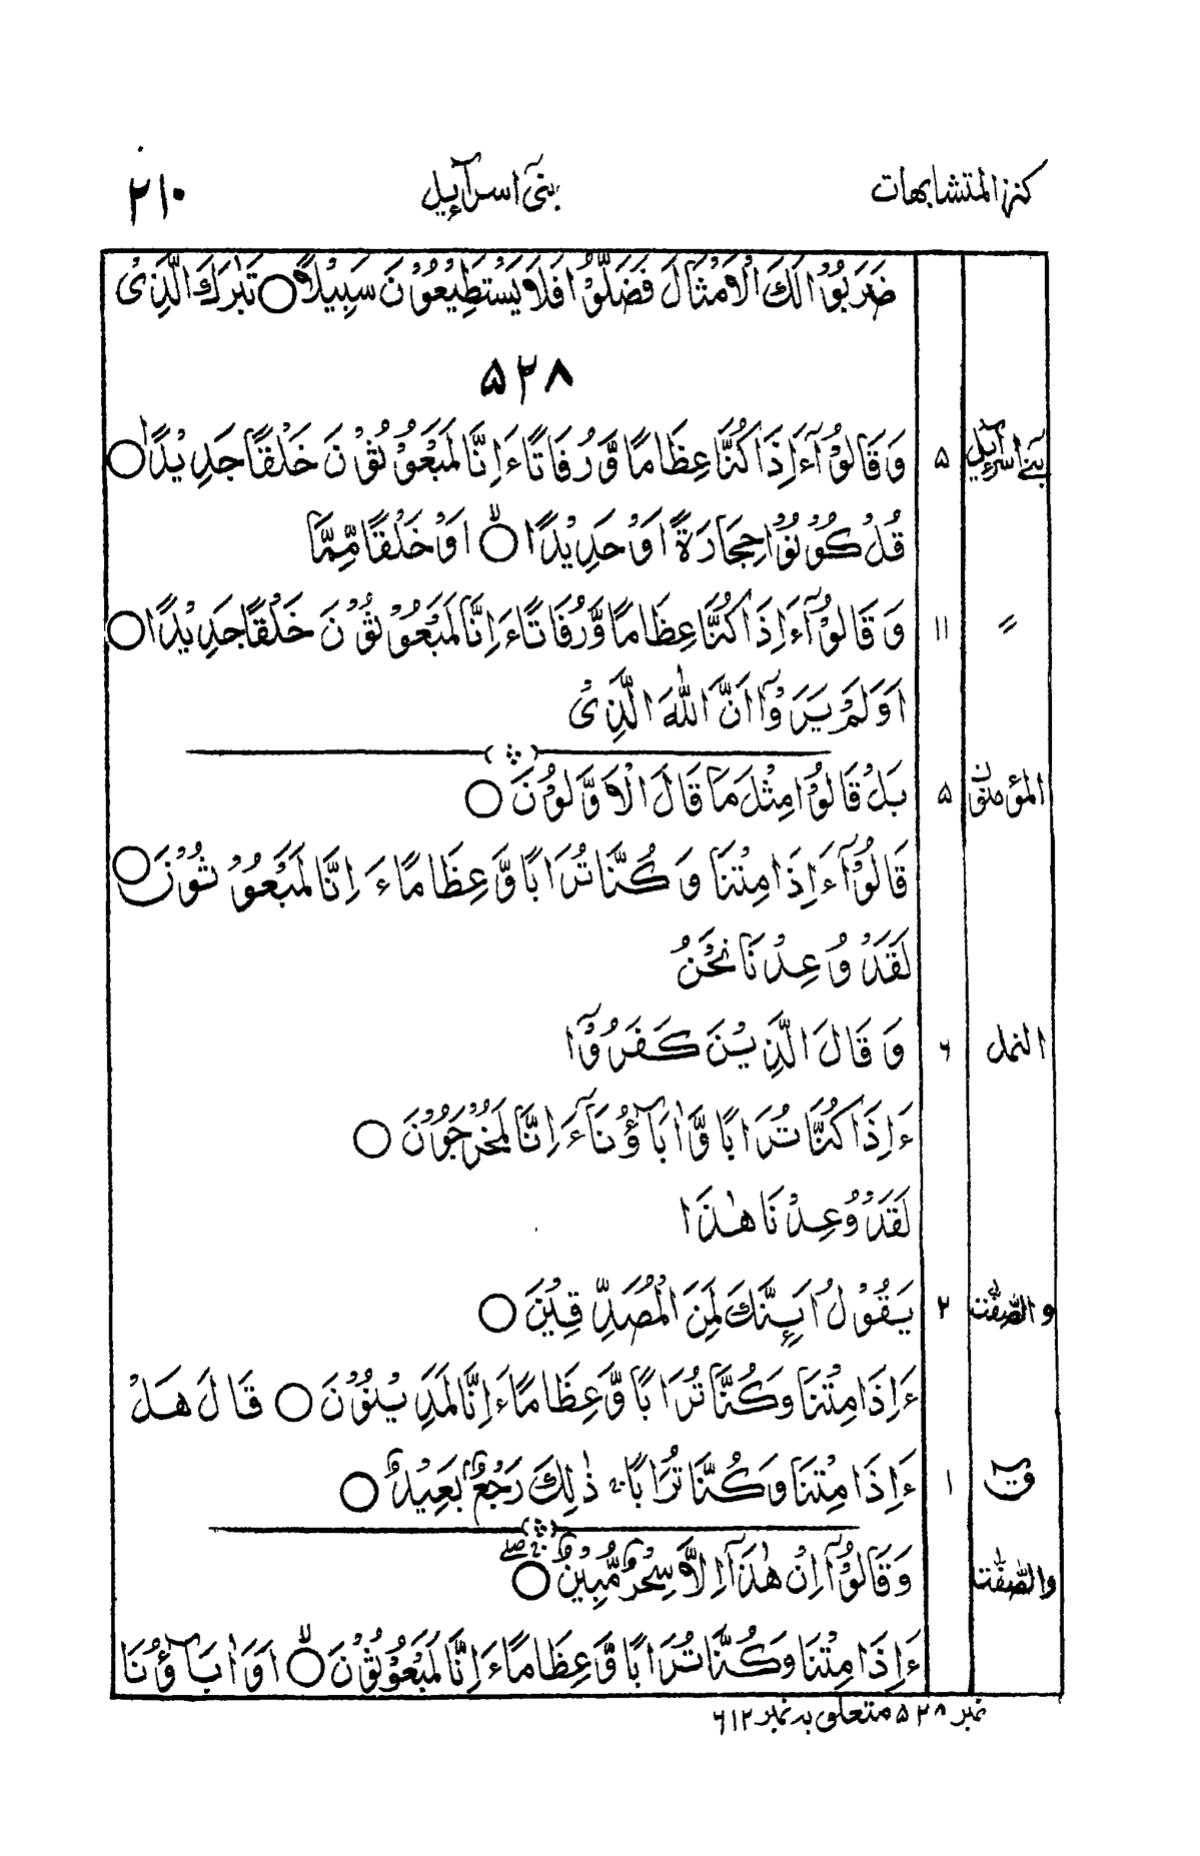 كنز المتشابهات بنیٓ اسرآءیل ٢١٠
ضَرَبُوْا لَكَ الْاَمْثَالَ فَضَلُّوْا فَلَا يَسْتَطِيْعُوْنَ سَبِيْلًا ○ تَبٰرَكَ الَّذِیْ
۵۲۸
بنیٓ اسرآءیل ۵ وَقَالُوْٓا ءَاِذَا كُنَّا عِظَامًا وَّرُفَاتًا ءَاِنَّا لَمَبْعُوْثُوْنَ خَلْقًا جَدِيْدًا ○
قُلْ كُوْنُوْا حِجَارَةً اَوْ حَدِيْدًا ○ۙ اَوْ خَلْقًا مِّمَّا
〃 ۱۱ وَقَالُوْٓا ءَاِذَا كُنَّا عِظَامًا وَّرُفَاتًا ءَاِنَّا لَمَبْعُوْثُوْنَ خَلْقًا جَدِيْدًا ○
اَوَلَمْ يَرَوْا اَنَّ اللّٰهَ الَّذِیْ
المؤمنون ۵ بَلْ قَالُوْا مِثْلَ مَا قَالَ الْاَوَّلُوْنَ ○
قَالُوْٓا ءَاِذَا مِتْنَا وَكُنَّا تُرَابًا وَّعِظَامًا ءَاِنَّا لَمَبْعُوْثُوْنَ ○
لَقَدْ وُعِدْنَا نَحْنُ
النمل ۶ وَقَالَ الَّذِيْنَ كَفَرُوْٓا
ءَاِذَا كُنَّا تُرَابًا وَّاٰبَآؤُنَآ ءَاِنَّا لَمُخْرَجُوْنَ ○
لَقَدْ وُعِدْنَا هٰذَا
والصّٰٓفّٰت ۲ يَقُوْلُ اَىِٕنَّكَ لَمِنَ الْمُصَدِّقِيْنَ ○
ءَاِذَا مِتْنَا وَكُنَّا تُرَابًا وَّعِظَامًا ءَاِنَّا لَمَدِيْنُوْنَ ○ قَالَ هَلْ
قٓ ۱ ءَاِذَا مِتْنَا وَكُنَّا تُرَابًا ۚ ذٰلِكَ رَجْعٌۢ بَعِيْدٌ ○
والصّٰٓفّٰت وَقَالُوْٓا اِنْ هٰذَآ اِلَّا سِحْرٌ مُّبِيْنٌ ○ۚۖ
ءَاِذَا مِتْنَا وَكُنَّا تُرَابًا وَّعِظَامًا ءَاِنَّا لَمَبْعُوْثُوْنَ ○ۙ اَوَاٰبَآؤُنَا
نمبر ۵۲۸ متعلق بہ نمبر ۶۱۲